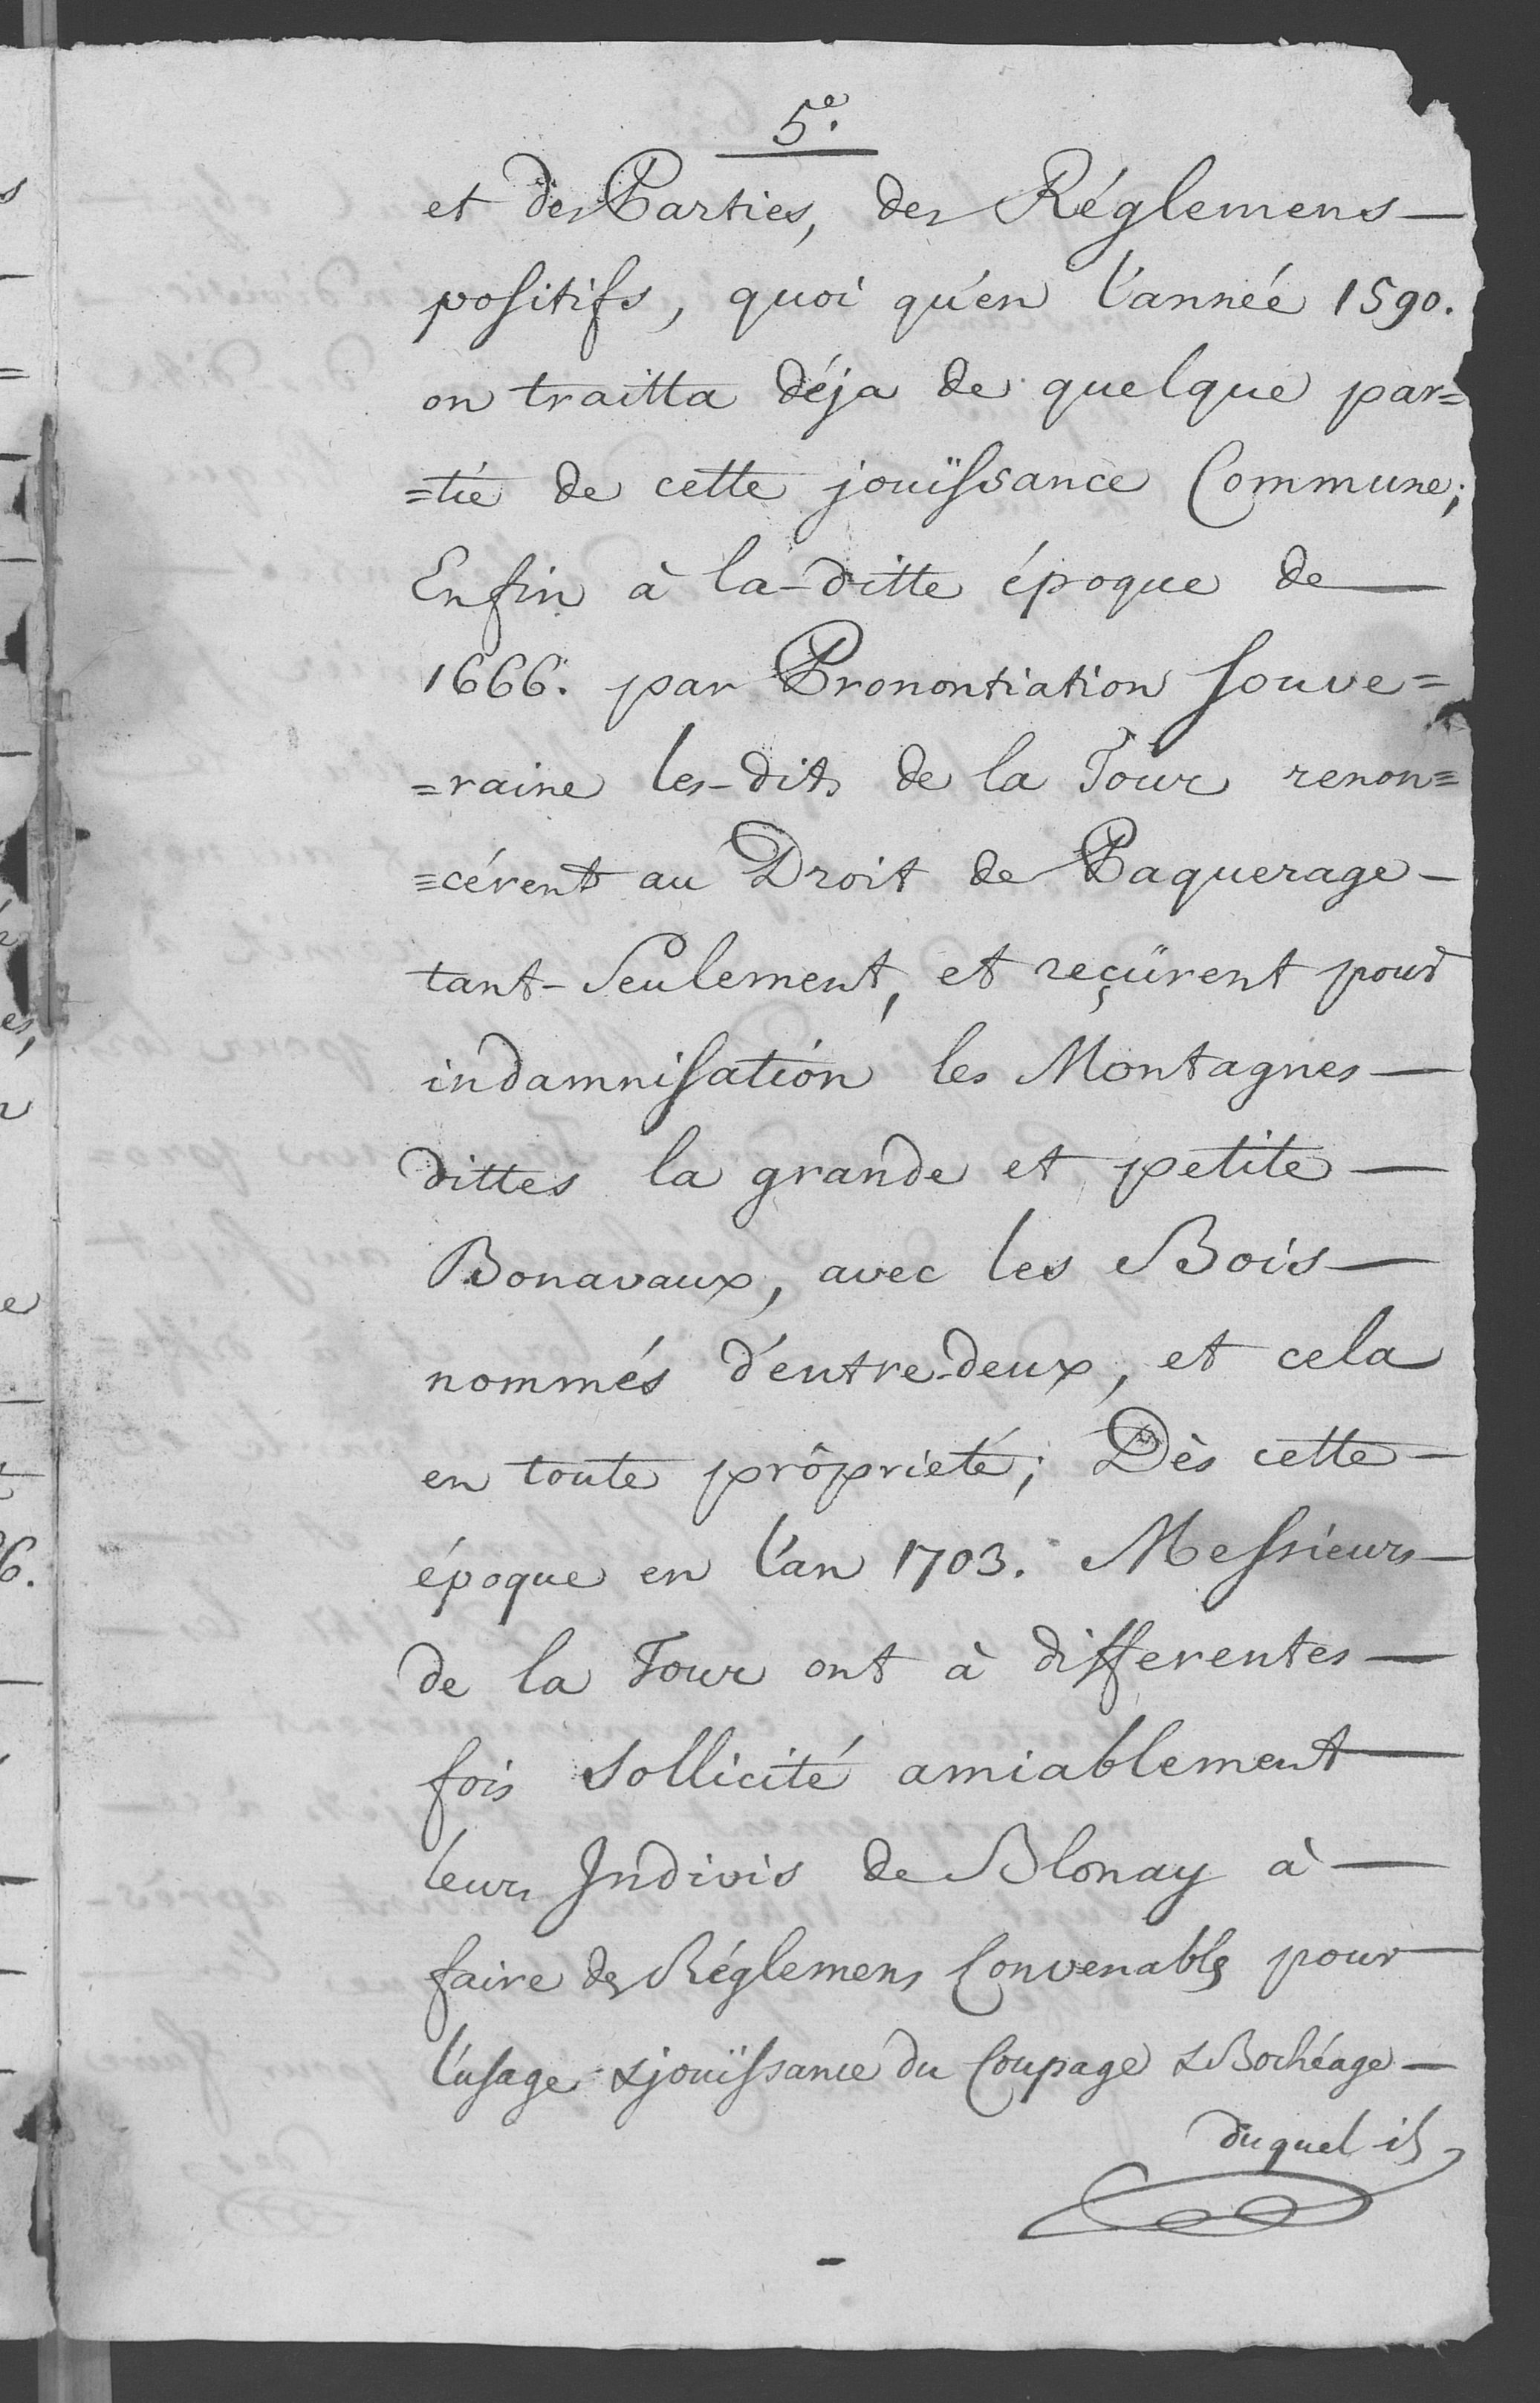 5.e
et des Parties, des Réglemens —
positifs, quoi qu'en l'année 1590.
on traitta déja de quelque par=
=tie de cette jouïssance Commune;
Enfin à la-ditte époque de —
1666. par Pronontiation souve=
=raine les-dits de la Tour renon=
=cérent au Droit de Paquerage —
tant-Seulement, et reçûrent pour
indamnisation les Montagnes —
dittes la grande et petite —
Bonavaux, avec les Bois —
nommés d'entre-deux, et cela
en toute propriété; Dès cette —
époque en l'an 1703. Messieurs —
de la Tour ont à differentes —
fois sollicité amiablement —
leurs Indivis de Blonay à —
faire des Réglemens Convenables pour —
l'usage & jouïssance du Coupage & Bochéage —
duquel ils